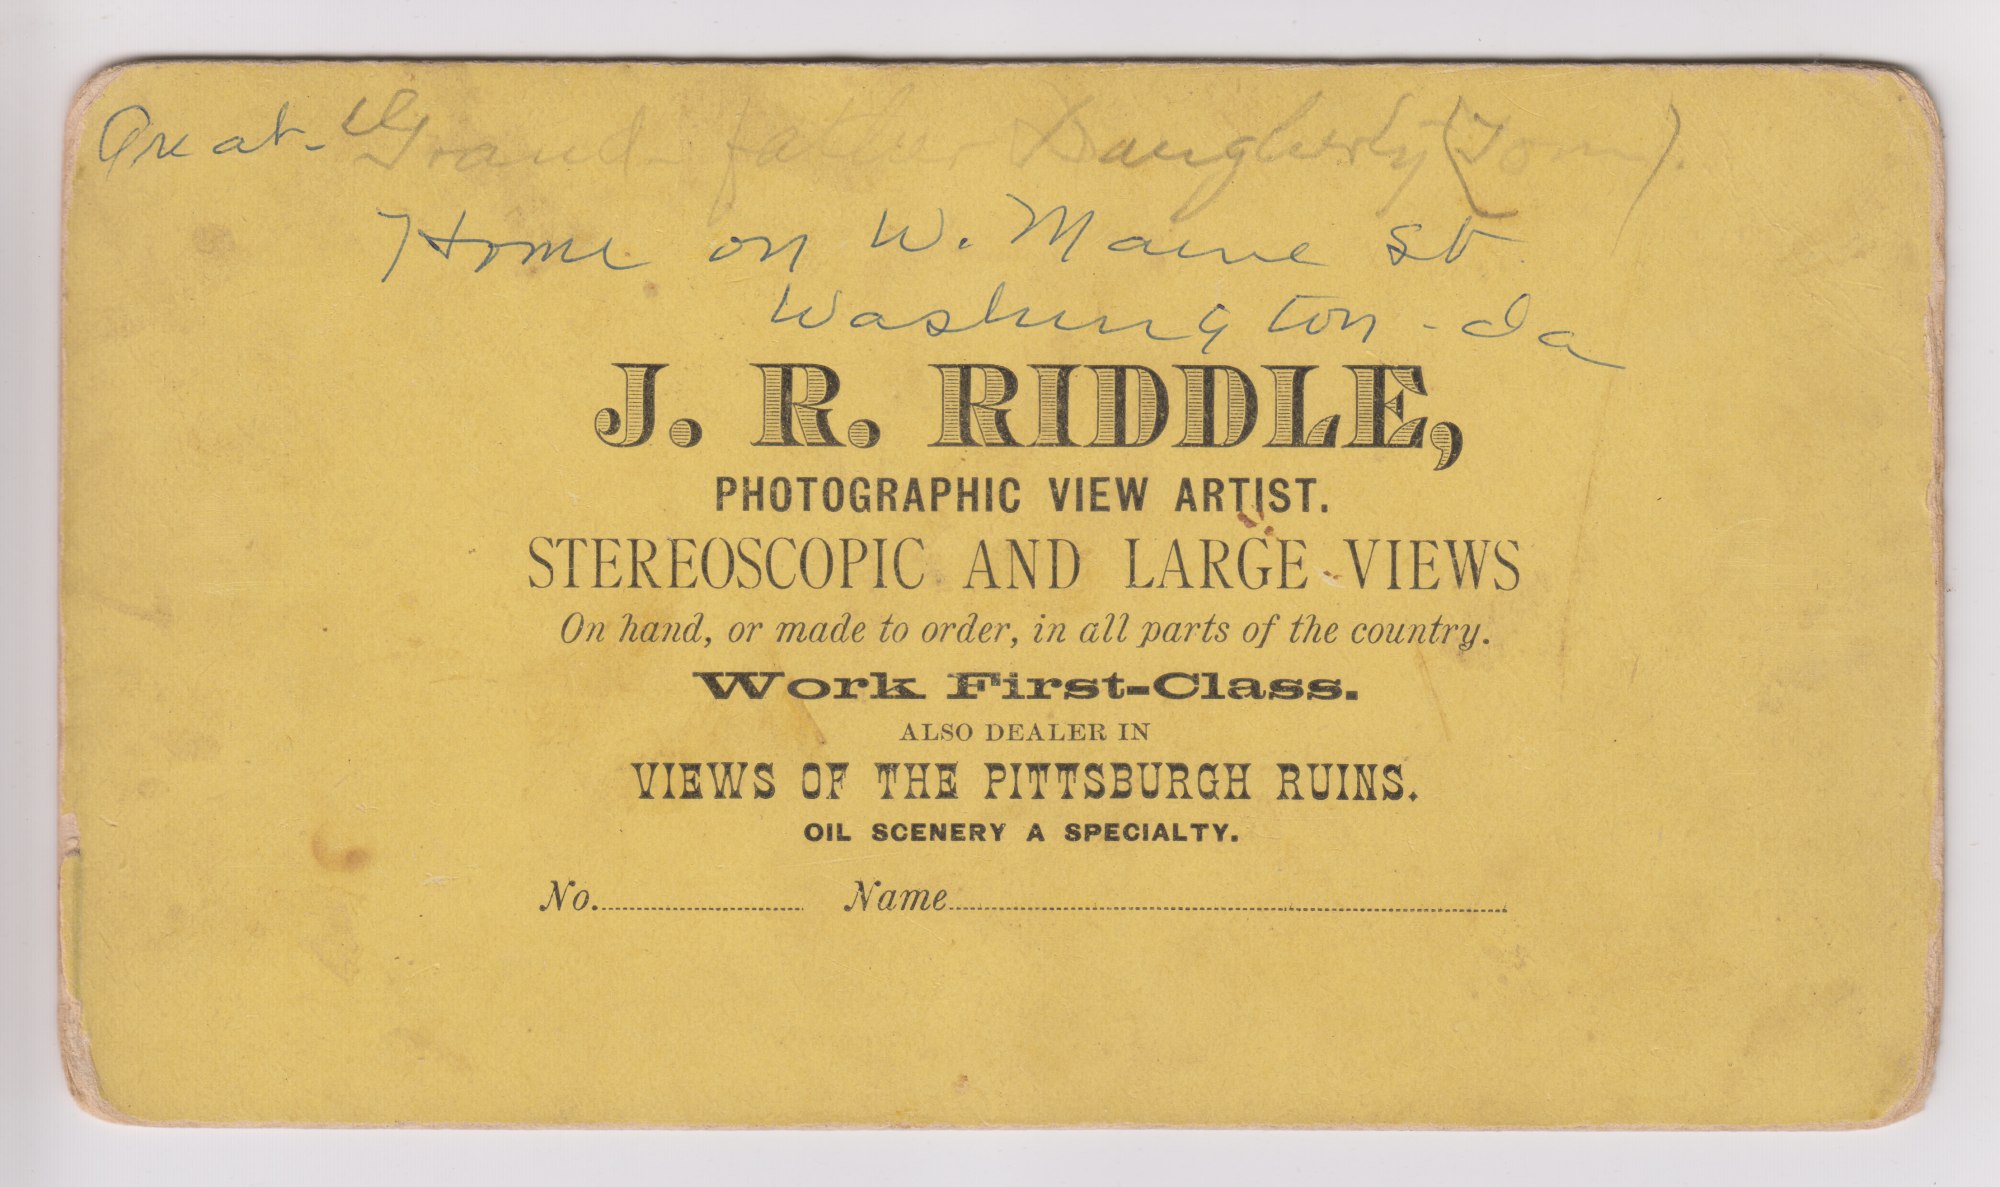 Great-Grand father Daugherty (Tom).
Home on W. Maine St.
Washington - Ia
J. R. RIDDLE,
PHOTOGRAPHIC VIEW ARTIST.
STEREOSCOPIC AND LARGE VIEWS
On hand, or made to order, in all parts of the country.
Work First-Class.
ALSO DEALER IN
VIEWS OF THE PITTSBURGH RUINS.
OIL SCENERY A SPECIALTY.
No. Name